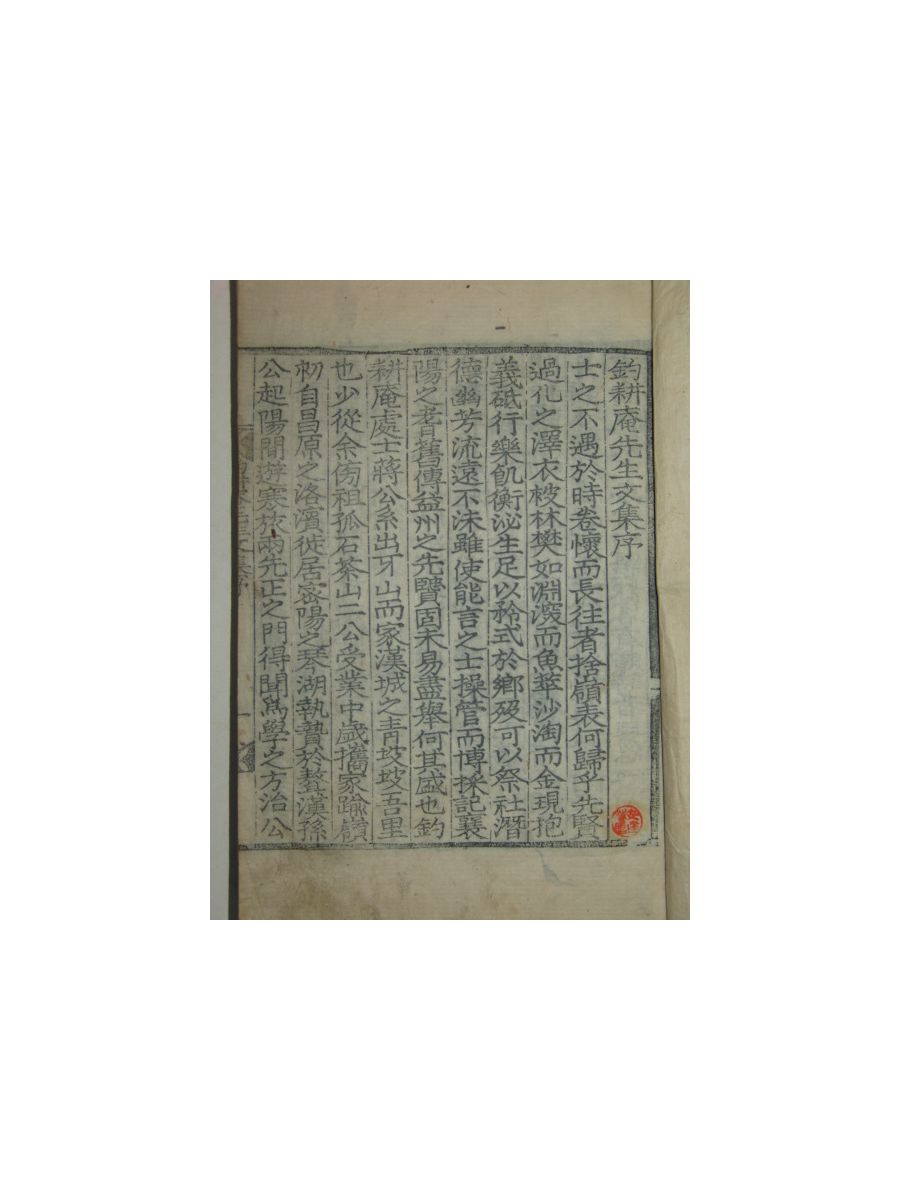 釣耕庵先生文集序
士之不遇於時卷懷而長往者捨嶺表何歸乎先賢
過化之澤衣被林樊如淵濅而魚萃沙淘而金現抱
義砥行樂飢衡泌生足以矜式於鄉歿可以祭社潛
德幽芳流遠不沬雖使能言之士操管而博採記襄
陽之耆舊傳益州之先賢固未易盡舉何其盛也釣
耕庵處士蔣公系出牙山而家漢城之靑坡坡吾里
也少從余傍祖孤石茶山二公受業中歲攜家踰嶺
初自昌原之洛濱徙居密陽之琴湖執贄於聱漢孫
公起陽間遊寒旅兩先正之門得聞爲學之方治公